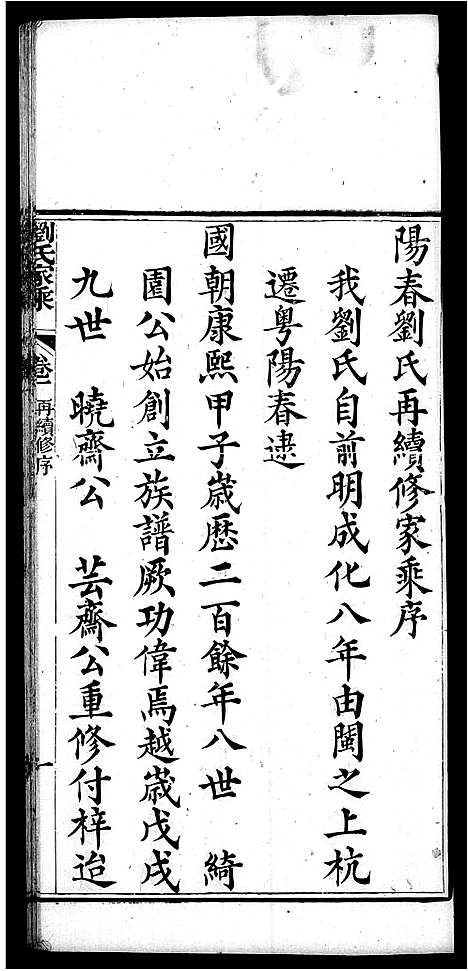 陽春劉氏再續修家乘序
我劉氏自前明成化八年由閩之上杭
遷粵陽春逮
國朝康熙甲子歲歷二百餘年八世　綺
園公始創立族譜厥功偉焉越歲戊戌
九世　曉齋公　芸齋公重修付梓迨
劉氏家乘　卷一　再續修序　一